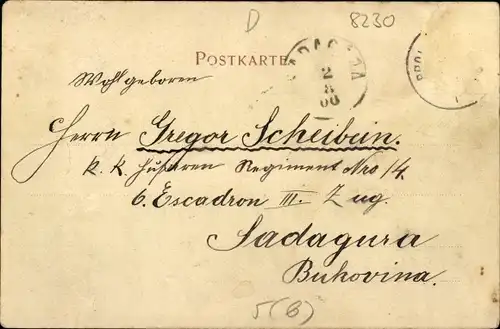 D
8230
POSTKARTE
2
8
00
Wohlgeboren
Herrn Gregor Scheibein.
k. k. Husaren Regiment Nro 14.
6. Escadron III. Zug.
Sadagura
Bukovina.
5(B)